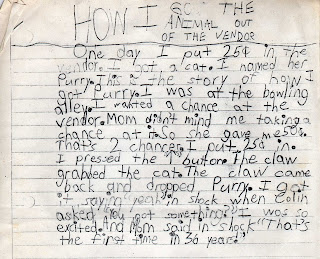 HOW I GO THE
ANIMAL OUT
OF THE VENDOR
One day I put 25¢ in the
vendor. I got a cat. I named her
Purry. This is the story of how I
got Purry. I was at the bowling
alley. I wanted a chance at the
vendor. Mom didn't mind me taking a
chance at it. So she gave me 50¢.
That's 2 chances. I put 25¢ in.
I pressed the button. The claw
grabbed the cat. The claw came
back and dropped Purry. I got
it saying "yeah" in shock when Colin
asked "You got something?" I was so
excited. And Mom said in shock "That's
the first time in 36 years."